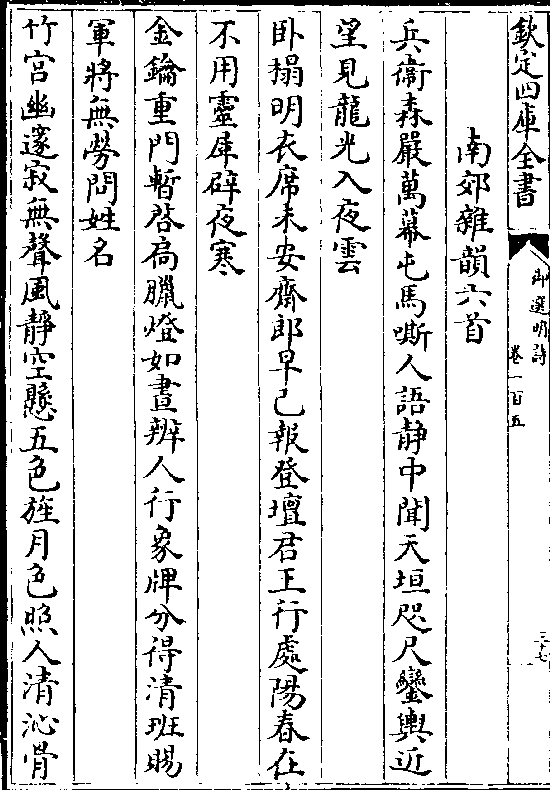 欽定四庫全書
御選明詩
卷一百五
三十七
南郊雜韻六首
兵衛森嚴萬幕屯馬嘶人語靜中聞天垣咫尺鑾輿近
望見龍光入夜雲
卧榻明衣席未安齋郎早已報登壇君王行處陽春在
不用靈犀辟夜寒
金鑰重門暫啓扃臘燈如晝辨人行象牌分得清班賜
軍將無勞問姓名
竹宮幽邃寂無聲風靜空懸五色旌月色照人清沁骨